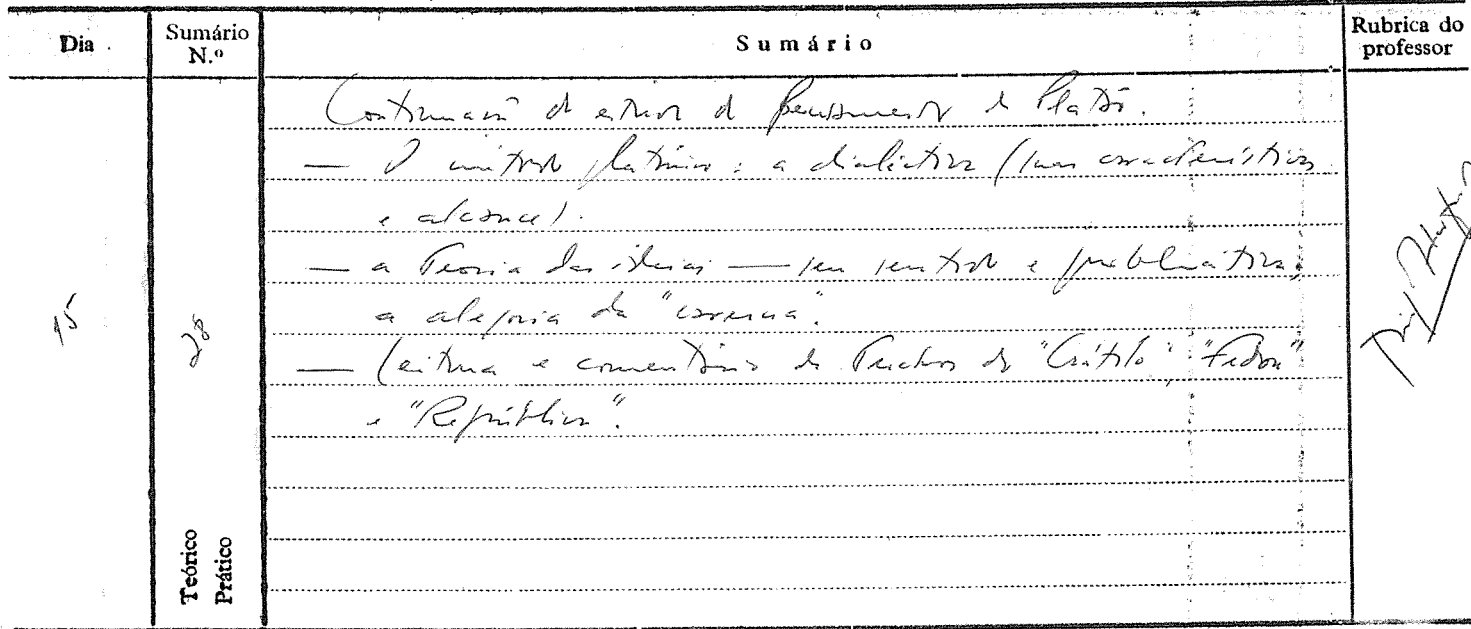 Dia
Sumário N.º
Sumário
Rubrica do professor
Continuação do estudo do pensamento de Platão.
— O método platónico: a dialéctica (suas características
e alcance).
— a Teoria das ideias — seu sentido e problemática;
a alegoria da "caverna".
— Leitura e comentário de Trechos do "Crátilo", "Fedon"
e "República".
15
28
Teórico
Prático